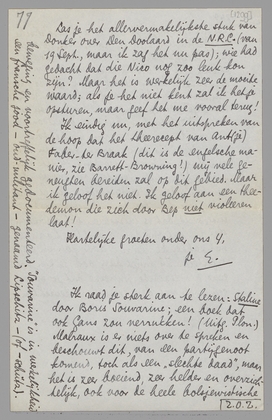 Las je het allervermakelijkste stuk van
Donker over Den Doolaard in de N.R.C. (van
19 Sept., maar ik zag het nu pas); wie had
gedacht dat die Nico nog zoo leuk kon
zijn? Maar het is werkelijk zeer de moeite
waard; als je het niet kent zal ik het je
opsturen, maar geef het me vooral terug!
Ik eindig nu, met het uitspreken van
de hoop dat het theerecept van Ant(je)
Faber-ter Braak (dit is de engelsche ma-
nier, zie Barrett-Browning!) mij vele ge-
neugten bereiden zal op dit gebied. Maar
ik geloof het niet. Ik geloof aan een thee-
demon die zich door Bep niet violeeren
laat!
Hartelijke groeten onder ons 4,
je E.
Ik raad je sterk aan te lezen: Staline
door Boris Souvarine; een boek dat
ook Gans zou verrukken! (Uitg. Plon.)
Malraux is er niets over te spreken en
beschouwt dit, van een partijgenoot
komend, toch als een „slechte daad", maar
het is zeer boeiend, zeer helder en overzich-
telijk, ook voor de heele bolsjewistische
beweging en voortreffelijk gedocumenteerd. Souvarine is in werkelijkheid
een russische jood - oud-militant - genaamd Lipschitz (of -schits).